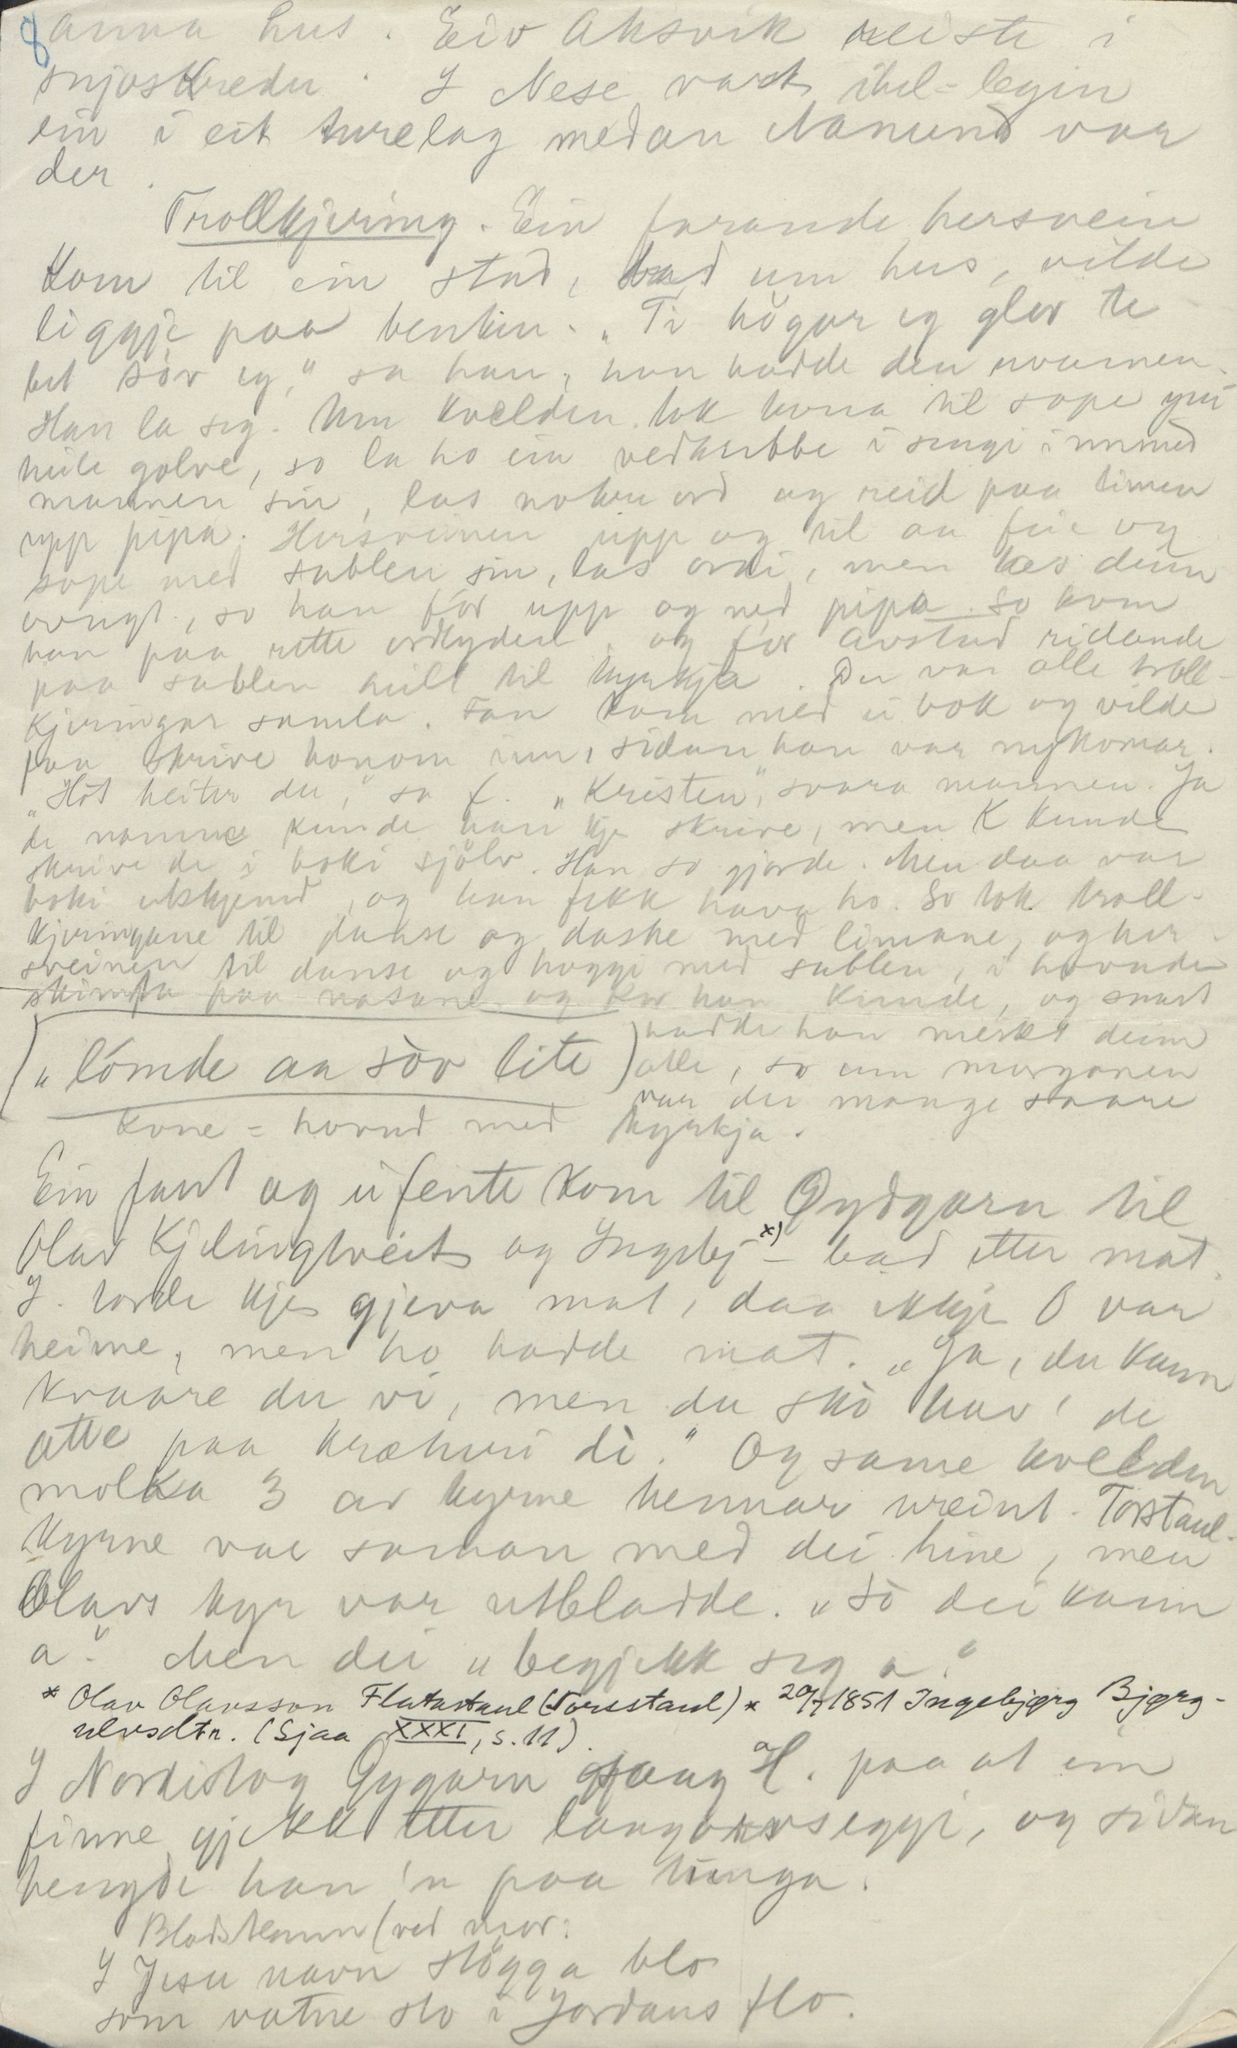 8
anna hus. Eiv Aksvik reiste i
snjoskredu. I Nese vart ihel-legin
ein i eit turelag medan Namund var
der.
Trollkjering. Ein farande hersvein
kom til ein stad, bad um hus, vilde
liggje paa benkin. "Ti högar eg glor te
bet söv eg," sa han, han hadde den
Han la seg. Um kvelden tok kona til sope yvi
heile golve, so la ho ein vedkubbe i sengi innmed
mannen sin, las nokre ord og reid paa limen
upp pipa. Hersveinen upp og til aa feie og
sope med sablen sin, las ordi, men las deim
vrengt, so han för upp og ned pipa. So kom
han paa rette ordlyden, og för avstad ridande
paa sablen heilt til kyrkja. Der var alle troll-
kjeringar samla. Fan kom med ei bok og vilde
faa skrive honom inn, sidan han var nykomar.
"Höt heiter du," sa f. "Kristen," svara mannen. Ja
de namne kunde han kje skrive, men K kunde
skrive de i boki sjölv. Han so gjorde. Men daa var
boki utskjemd, og han fekk hava ho. So tok troll-
kjeringane til danse og daske med limane, og her-
sveinen til danse og hoggi med sablen, i hovude
skimta paa nasane og kor han kunde, og snart
hadde han merkt deim
("lömde aa söv lite) alle, so um morganen
var dei mange saare
kone = hovud med kyrkja.
Ein fant og ei fente kom til Øydgarn til
Olav Kjelingtveit og Ingebj x) – bad etter mat.
I. torde kje gjeva mat, daa ikkje O var
heime, men ho hadde mat. "Ja, du kann
kvaare du vi, men du skò hav' de
atte paa kræturi di." Og same kvelden
molka 3 av kyrne hennar ureint. Torstaul-
kyrne var saman med dei hine, men
Olavs kyr var utbladde. "Sò dei kann
a." Men dei "begjekk seg a."
* Olav Olavsson Flatastaul (Torsstaul) * 20/7 1851 Ingebjørg Bjørg-
ulvsdtr. (Sjaa XXXI, s. 11).
I Nordistog Gygarn saag H. paa at ein
finne gjekk etter langorvseggi, og sidan
hengde han 'n paa tunga.
Blodstemn (ved mor:
I Jesu navn stögga blo
som vatne sto i Jordans flo.